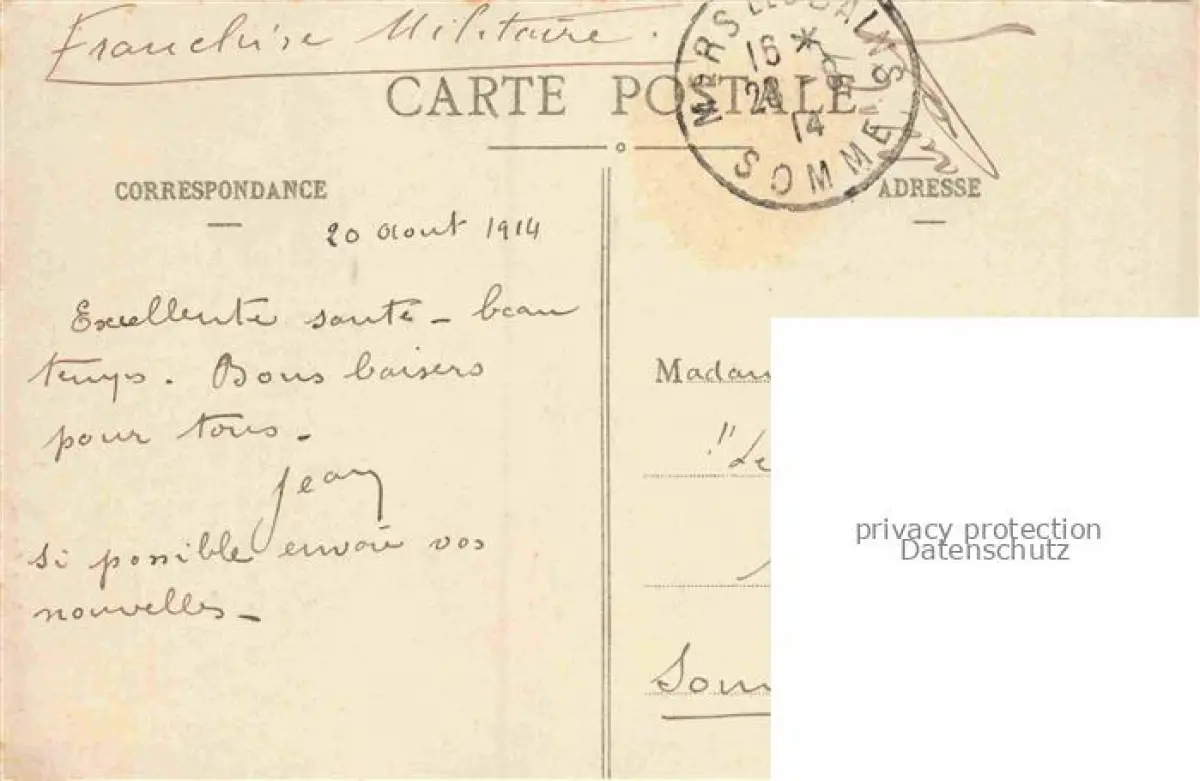 Franchise Militaire.
CARTE POSTALE
MERS LES BAINS
16 *
20 - 8
14
SOMME
CORRESPONDANCE
ADRESSE
20 Aout 1914
Excellente santé - beau
temps. Bons baisers
pour tous -
Jean
si possible envoie vos
nouvelles -
Madam
"Le
Som
privacy protection
Datenschutz